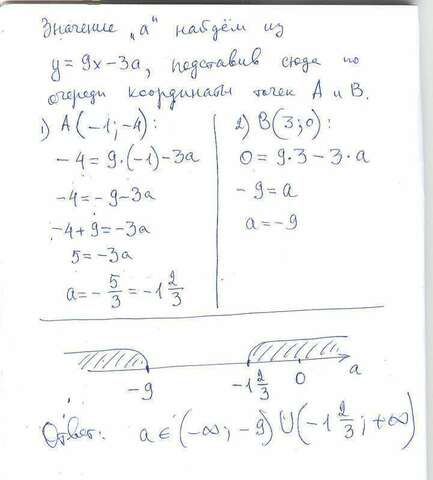 Значение „а" найдём из
y = 9x - 3a, подставив сюда по
очереди координаты точек A и B.
1) A(-1; -4):
-4 = 9·(-1) - 3a
-4 = -9 - 3a
-4 + 9 = -3a
5 = -3a
a = - 5/3 = -1 2/3
2) B(3; 0):
0 = 9·3 - 3·a
-9 = a
a = -9
-9 -1 2/3 0 a
Ответ: a ∈ (-∞; -9) ∪ (-1 2/3; +∞)